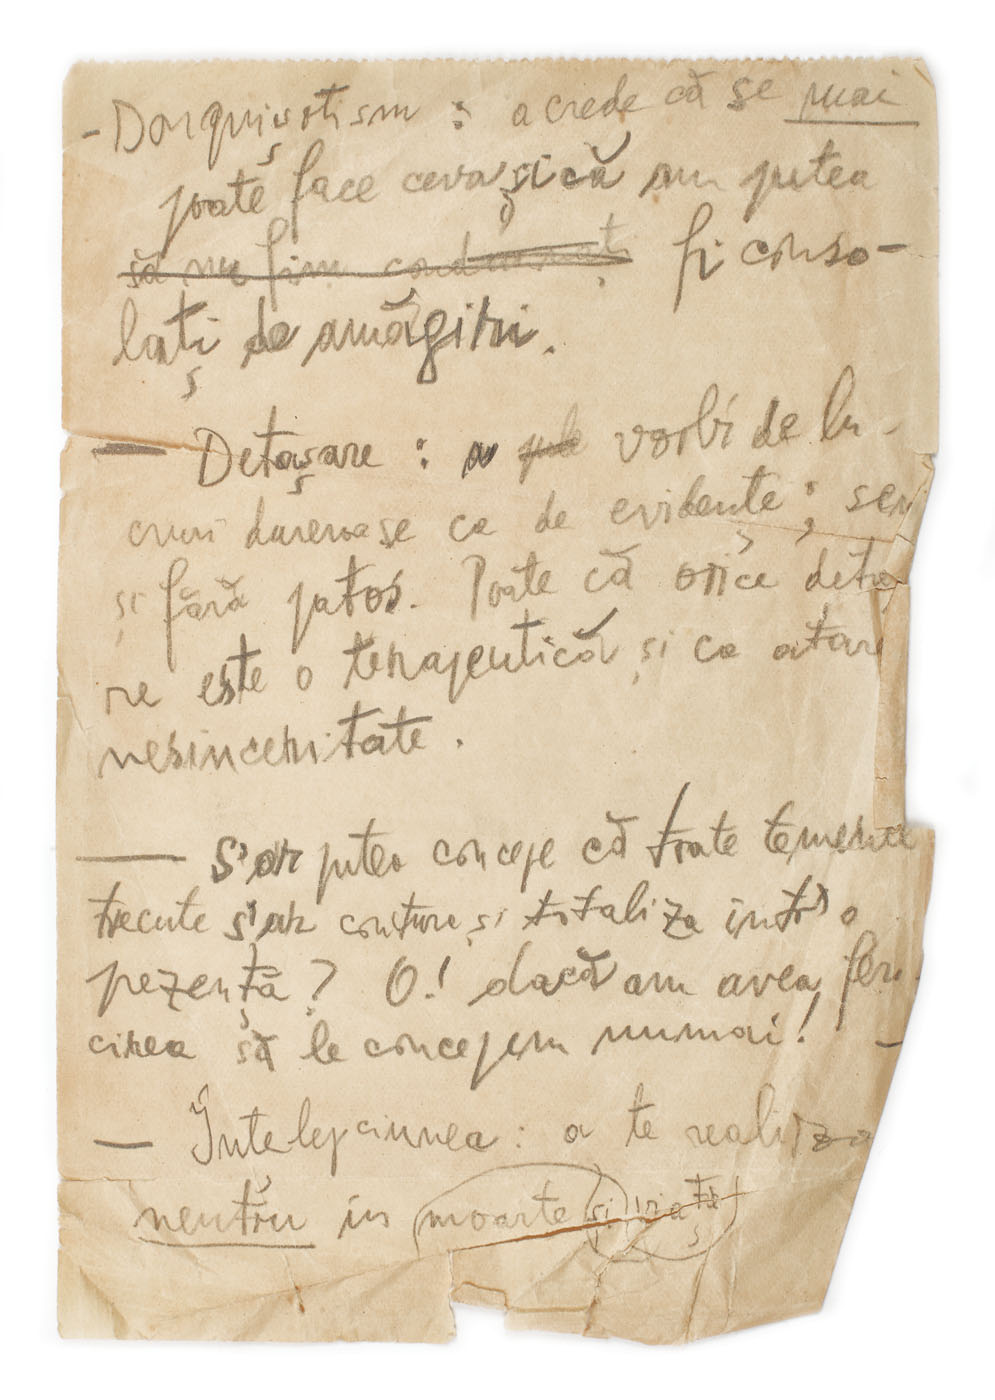 – Donquișotism : a crede că se mai
poate face ceva și că am putea
să nu fim condamnați fi conso-
lați de amăgiri.
— Detașare : a vorbi de lu-
cruri dureroase ca de evidențe ; sen
și fără patos. Poate că orice detaș
re este o terapeutică și ca atare
nesinceritate.
— S'ar putea concepe că toate temerile
trecute s'ar contura și totaliza într'o
pezență ? O ! dacă am avea feri-
cirea să le concepem numai ! –
— Înțelepciunea : a te realiza
neutru în moarte și viață